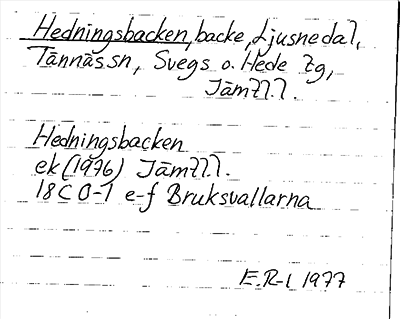 Hedningsbacken, backe, Ljusnedal,
Tännäs sn, Svegs o. Hede tg,
Jämtl l.
Hedningsbacken
ek (1976) Jämtl l.
18C 0-1 e-f Bruksvallarna
E.R-L 1977